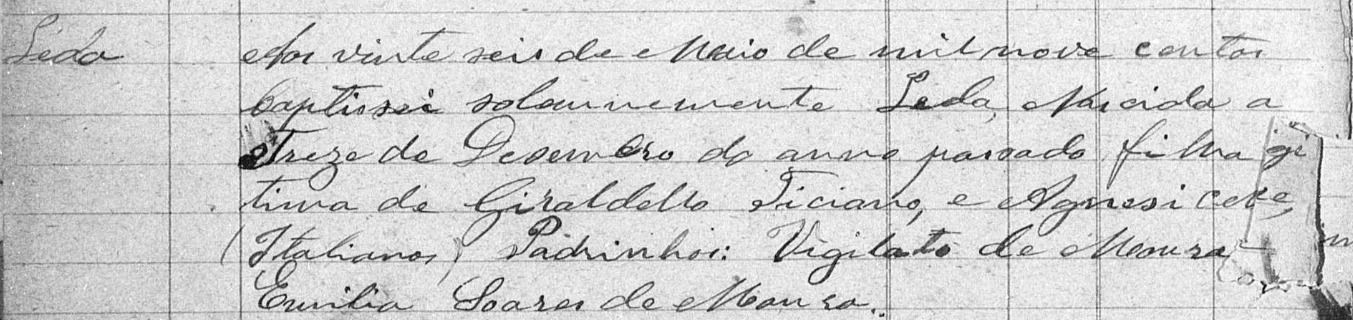 Leda Aos vinte seis de Maio de mil nove centos
baptisei solemnemente Leda, Nascida a
Treze de Desembro do anno passado filha gi
tima de Giraldello Ticiano, e Agnesi
(Italianos) Padrinhos: Vigilato de Moura
Emilia Soares de Moura..